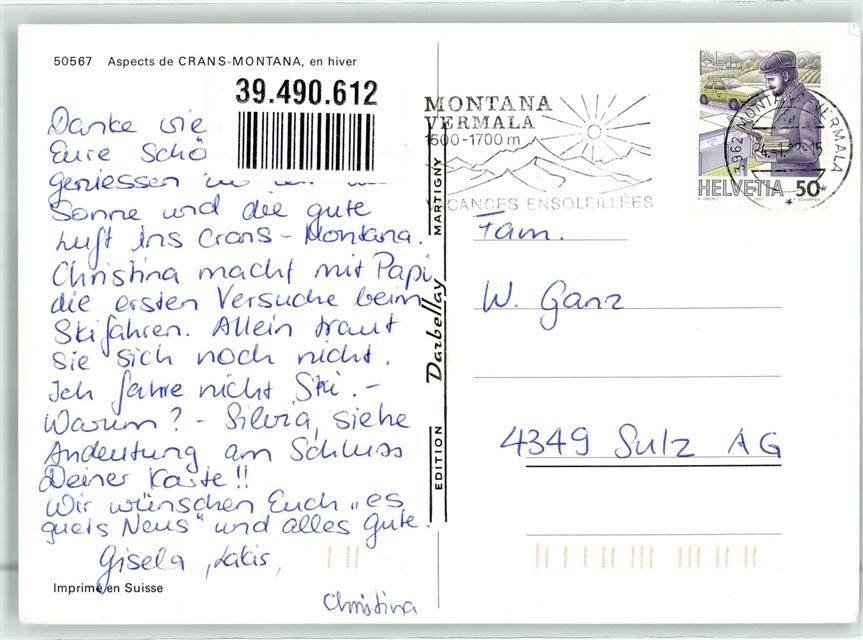 50567 Aspects de CRANS-MONTANA, en hiver
39.490.612
Danke
Eure Schö
geniessen
Sonne und die gute
Luft ins Crans-Montana.
Christina macht mit Papi
die ersten Versuche beim
Skifahren. Allein traut
sie sich noch nicht.
Ich fahre nicht Ski. -
Warum? - Silvia, siehe
Andeutung am Schluss
Deiner Karte!!
Wir wünschen Euch „es
guets Neus" und alles Gute.
Gisela,
Christina
Imprimé en Suisse
EDITION Darbellay MARTIGNY
MONTANA
VERMALA
1500-1700 m
VACANCES ENSOLEILLÉES
3962 MONTANA-VERMALA
HELVETIA 50
Fam.
W. Ganz
4349 Sulz AG